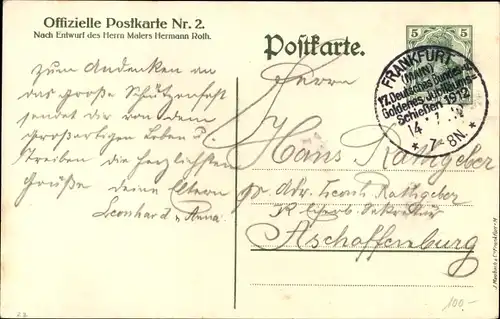 Offizielle Postkarte Nr. 2.
Nach Entwurf des Herrn Malers Hermann Roth.
Zum Andenken an
das große Schützenfest
sendet dir von dem
großartigen Leben u.
Treiben die herzlichsten
Grüße deine Eltern
Leonhard u. Anna.
Postkarte.
5 5
FRANKFURT
(MAIN)
17. Deutsches Bundes- u.
Goldenes Jubiläums-
Schießen 1912
14 7 12
* 7-8N. *
Herrn
Hans Rathgeber
pr. Adr. Leonh. Rathgeber
Aschaffenburg
100.-